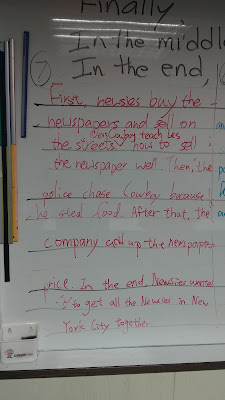 Finally,
In the middle
In the end,
7
First, newsies buy the
newspapers and sell on
Then Cowboy teach Les
the streets. how to sell
the newspaper well. Then, the
police chase Cowboy because
he steal food. After that, the
company up the newspapers
price. In the end, Newsies wanted
to get all the Newsies in New
York City together